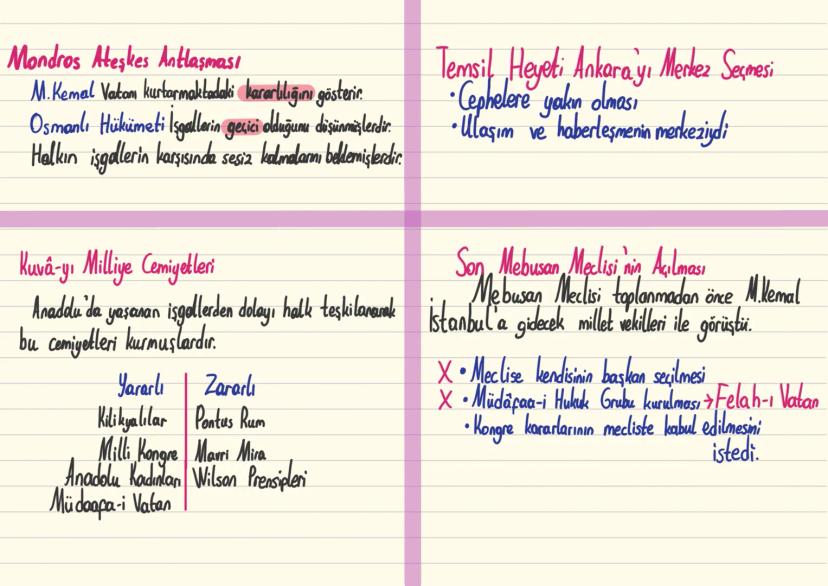 Mondros Ateşkes Antlaşması
M.Kemal Vatanı kurtarmaktadaki kararlılığını gösterir.
Osmanlı Hükümeti İşgallerin geçici olduğunu düşünmişlerdir.
Halkın işgallerin karşısında sesiz kalmalarını beklemişlerdir.
Temsil Heyeti Ankara'yı Merkez Seçmesi
• Cephelere yakın olması
• Ulaşım ve haberleşmenin merkeziydi
Kuvâ-yı Milliye Cemiyetleri
Anadolu'da yaşanan işgallerden dolayı halk teşkilanarak
bu cemiyetleri kurmuşlardır.
Yararlı Zararlı
Kilikyalılar Pontus Rum
Milli Kongre Mavri Mira
Anadolu Kadınları Wilson Prensipleri
Müdaapa-i Vatan
Son Mebusan Meclisi'nin Açılması
Mebusan Meclisi toplanmadan önce M.Kemal
İstanbul'a gidecek millet vekilleri ile görüştü.
X • Meclise kendisinin başkan seçilmesi
X • Müdâfaa-i Hukuk Grubu kurulması → Felah-ı Vatan
• Kongre kararlarının mecliste kabul edilmesini
istedi.